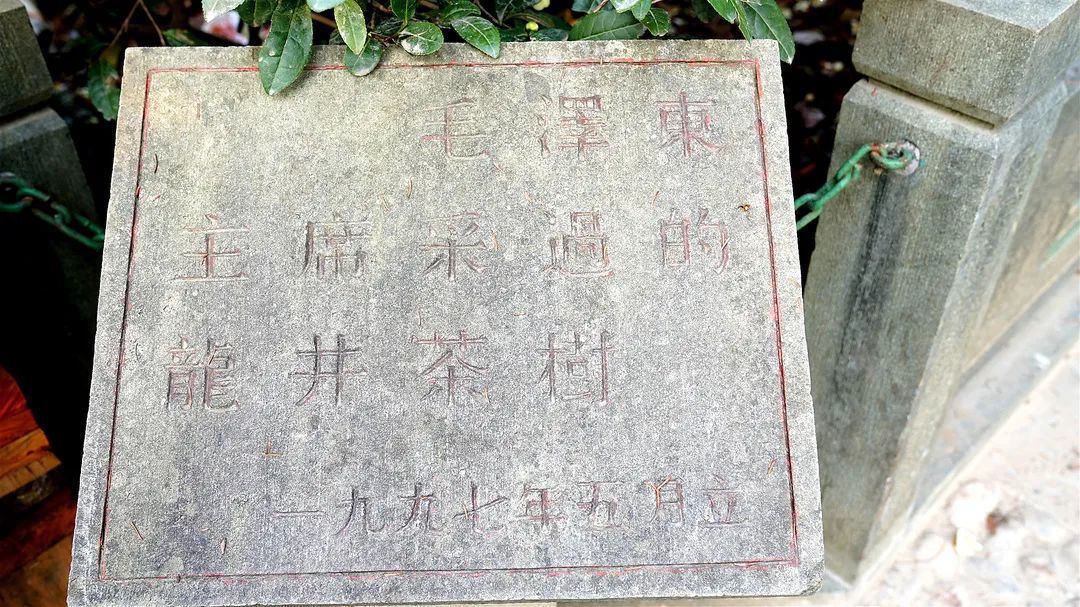 毛澤東
主席采過的
龍井茶樹
一九九七年五月立